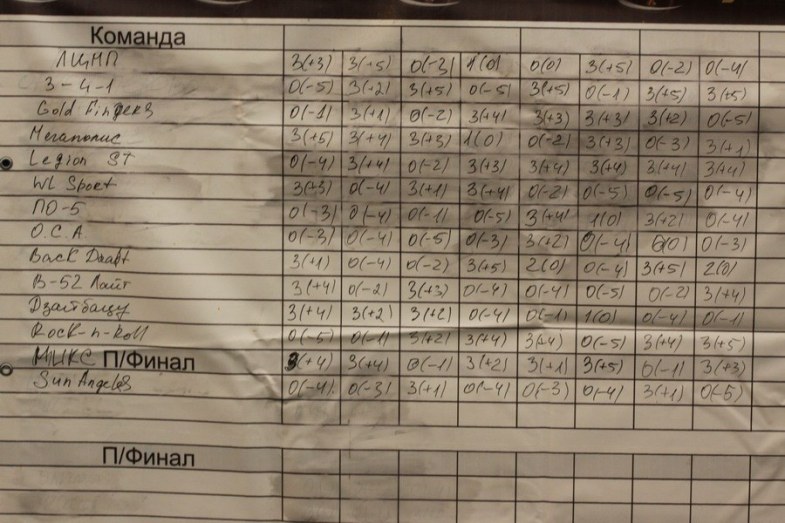 Команда
ЛЩНП 3(+3) 3(+5) 0(-3) 1(0) 0(0) 3(+5) 0(-2) 0(-4)
3-4-1 0(-5) 3(+2) 3(+5) 0(-5) 3(+5) 0(-1) 3(+5) 3(+5)
Gold Fingers 0(-1) 3(+1) 0(-2) 3(+4) 3(+3) 3(+3) 3(+2) 0(-5)
Мегаполис 3(+5) 3(+4) 3(+3) 1(0) 0(-2) 3(+3) 0(-3) 3(+1)
Legion ST 0(-4) 3(+4) 0(-2) 3(+3) 3(+4) 3(+4) 3(+4) 3(+4)
WL Sport 3(+3) 0(-4) 3(+1) 3(+4) 0(-2) 0(-5) 0(-5) 0(-4)
ПО-5 0(-3) 0(-4) 0(-1) 0(-5) 3(+4) 1(0) 3(+2) 0(-4)
О.С.А. 0(-3) 0(-4) 0(-5) 0(-3) 3(+2) 0(-4) 0(0) 0(-3)
Back Draft 3(+1) 0(-4) 0(-2) 3(+5) 2(0) 0(-4) 3(+5) 2(0)
B-52 Лайт 3(+4) 0(-2) 3(+3) 0(-4) 0(-4) 0(-5) 0(-2) 3(+4)
Дзайбацу 3(+4) 3(+2) 3(+2) 0(-4) 0(-1) 1(0) 0(-4) 0(-1)
Rock-n-Roll 0(-5) 0(-1) 3(+2) 3(+4) 3(+4) 0(-5) 3(+4) 3(+5)
МИКС П/Финал 3(+4) 3(+4) 0(-1) 3(+2) 3(+1) 3(+5) 0(-1) 3(+3)
Sun Angeles 0(-4) 0(-3) 3(+1) 0(-4) 0(-3) 0(-4) 3(+1) 0(-5)
П/Финал